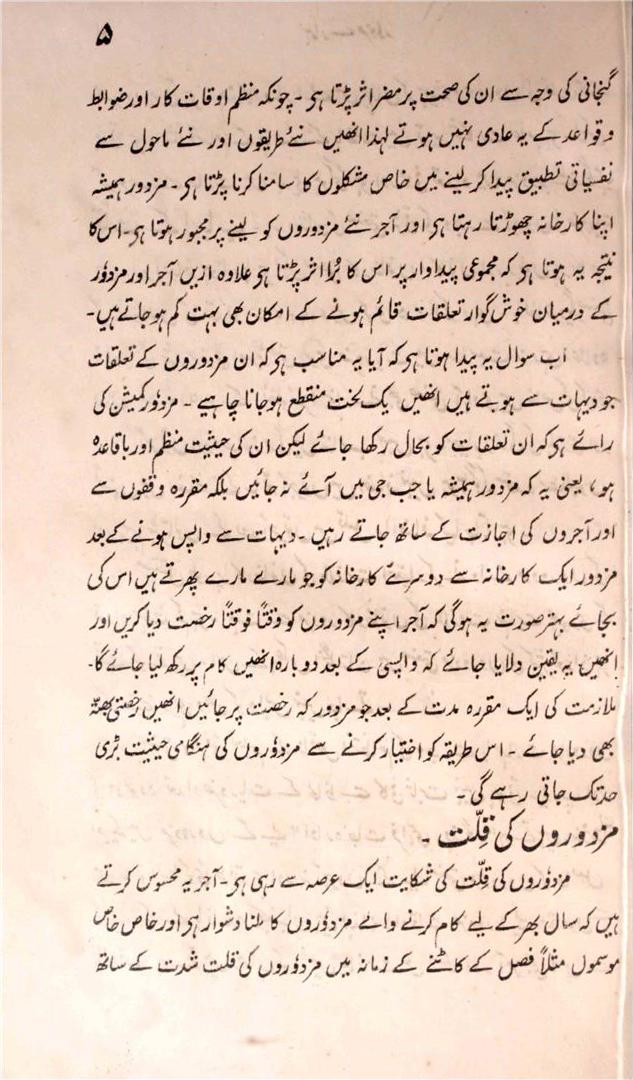 ۵
گنجانی کی وجہ سے ان کی صحت پر مضر اثر پڑتا ہی ۔ چونکہ منظم اوقات کار اور ضوابط
و قواعد کے یہ عادی نہیں ہوتے لہذا انھیں نئے طریقوں اور نئے ماحول سے
نفسیاتی تطبیق پیدا کر لینے میں خاص مشکلوں کا سامنا کرنا پڑتا ہی ۔ مزدور ہمیشہ
اپنا کارخانہ چھوڑتا رہتا ہی اور آجر نئے مزدوروں کو لینے پر مجبور ہوتا ہی ۔ اس کا
نتیجہ یہ ہوتا ہی کہ مجموعی پیداوار پر اس کا بُرا اثر پڑتا ہی علاوہ ازیں آجر اور مزدوُر
کے درمیان خوش گوار تعلقات قائم ہونے کے امکان بھی بہت کم ہو جاتے ہیں ۔
اب سوال یہ پیدا ہوتا ہی کہ آیا یہ مناسب ہی کہ ان مزدوروں کے تعلقات
جو دیہات سے ہوتے ہیں انھیں یک لخت منقطع ہو جانا چاہیے ۔ مزدوُر کمیشن کی
رائے ہی کہ ان تعلقات کو بحال رکھا جائے لیکن ان کی حیثیت منظم اور باقاعدہ
ہو ، یعنی یہ کہ مزدور ہمیشہ یا جب جی میں آئے نہ جائیں بلکہ مقررہ وقفوں سے
اور آجروں کی اجازت کے ساتھ جاتے رہیں ۔ دیہات سے واپس ہونے کے بعد
مزدور ایک کارخانہ سے دوسرے کارخانہ کو جو مارے مارے پھرتے ہیں اس کی
بجائے بہتر صورت یہ ہوگی کہ آجر اپنے مزدوروں کو وقتاً فوقتاً رخصت دیا کریں اور
انھیں یہ یقین دلایا جائے کہ واپسی کے بعد دوبارہ انھیں کام پر رکھ لیا جائے گا ۔
ملازمت کی ایک مقررہ مدت کے بعد جو مزدور کہ رخصت پر جائیں انھیں رخصتی بھتہّ
بھی دیا جائے ۔ اس طریقہ کو اختیار کرنے سے مزدوُروں کی ہنگامی حیثیت بڑی
حد تک جاتی رہے گی ۔
مزدوروں کی قلّت ۔
مزدوُروں کی قِلّت کی شکایت ایک عرصہ سے رہی ہی ۔ آجر یہ محسوس کرتے
ہیں کہ سال بھر کے لیے کام کرنے والے مزدوُروں کا ملنا دشوار ہی اور خاص خاص
موسموں مثلاً فصل کے کاٹنے کے زمانہ میں مزدوُروں کی قلت شدت کے ساتھ